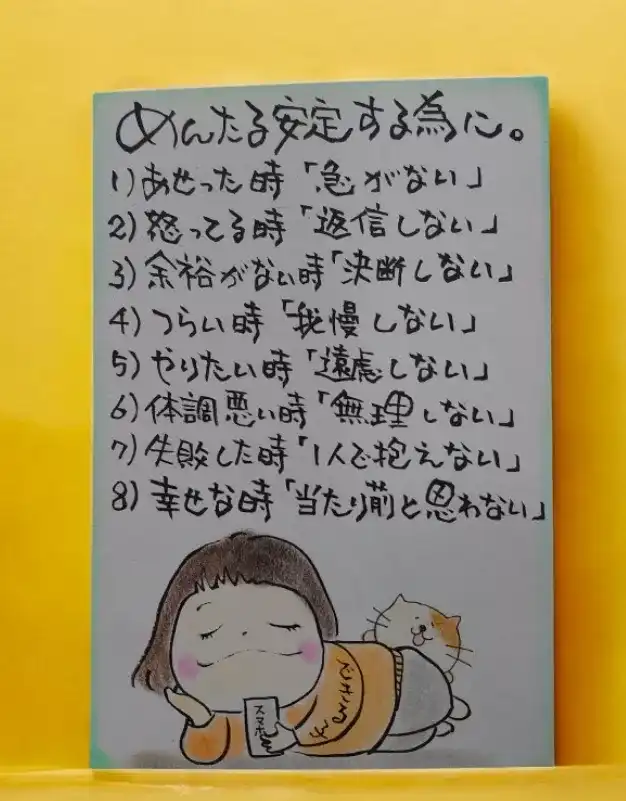 めんたる安定する為に。
1)あせった時「急がない」
2)怒ってる時「返信しない」
3)余裕がない時「決断しない」
4)つらい時「我慢しない」
5)やりたい時「遠慮しない」
6)体調悪い時「無理しない」
7)失敗した時「1人で抱えない」
8)幸せな時「当たり前と思わない」
スマホ